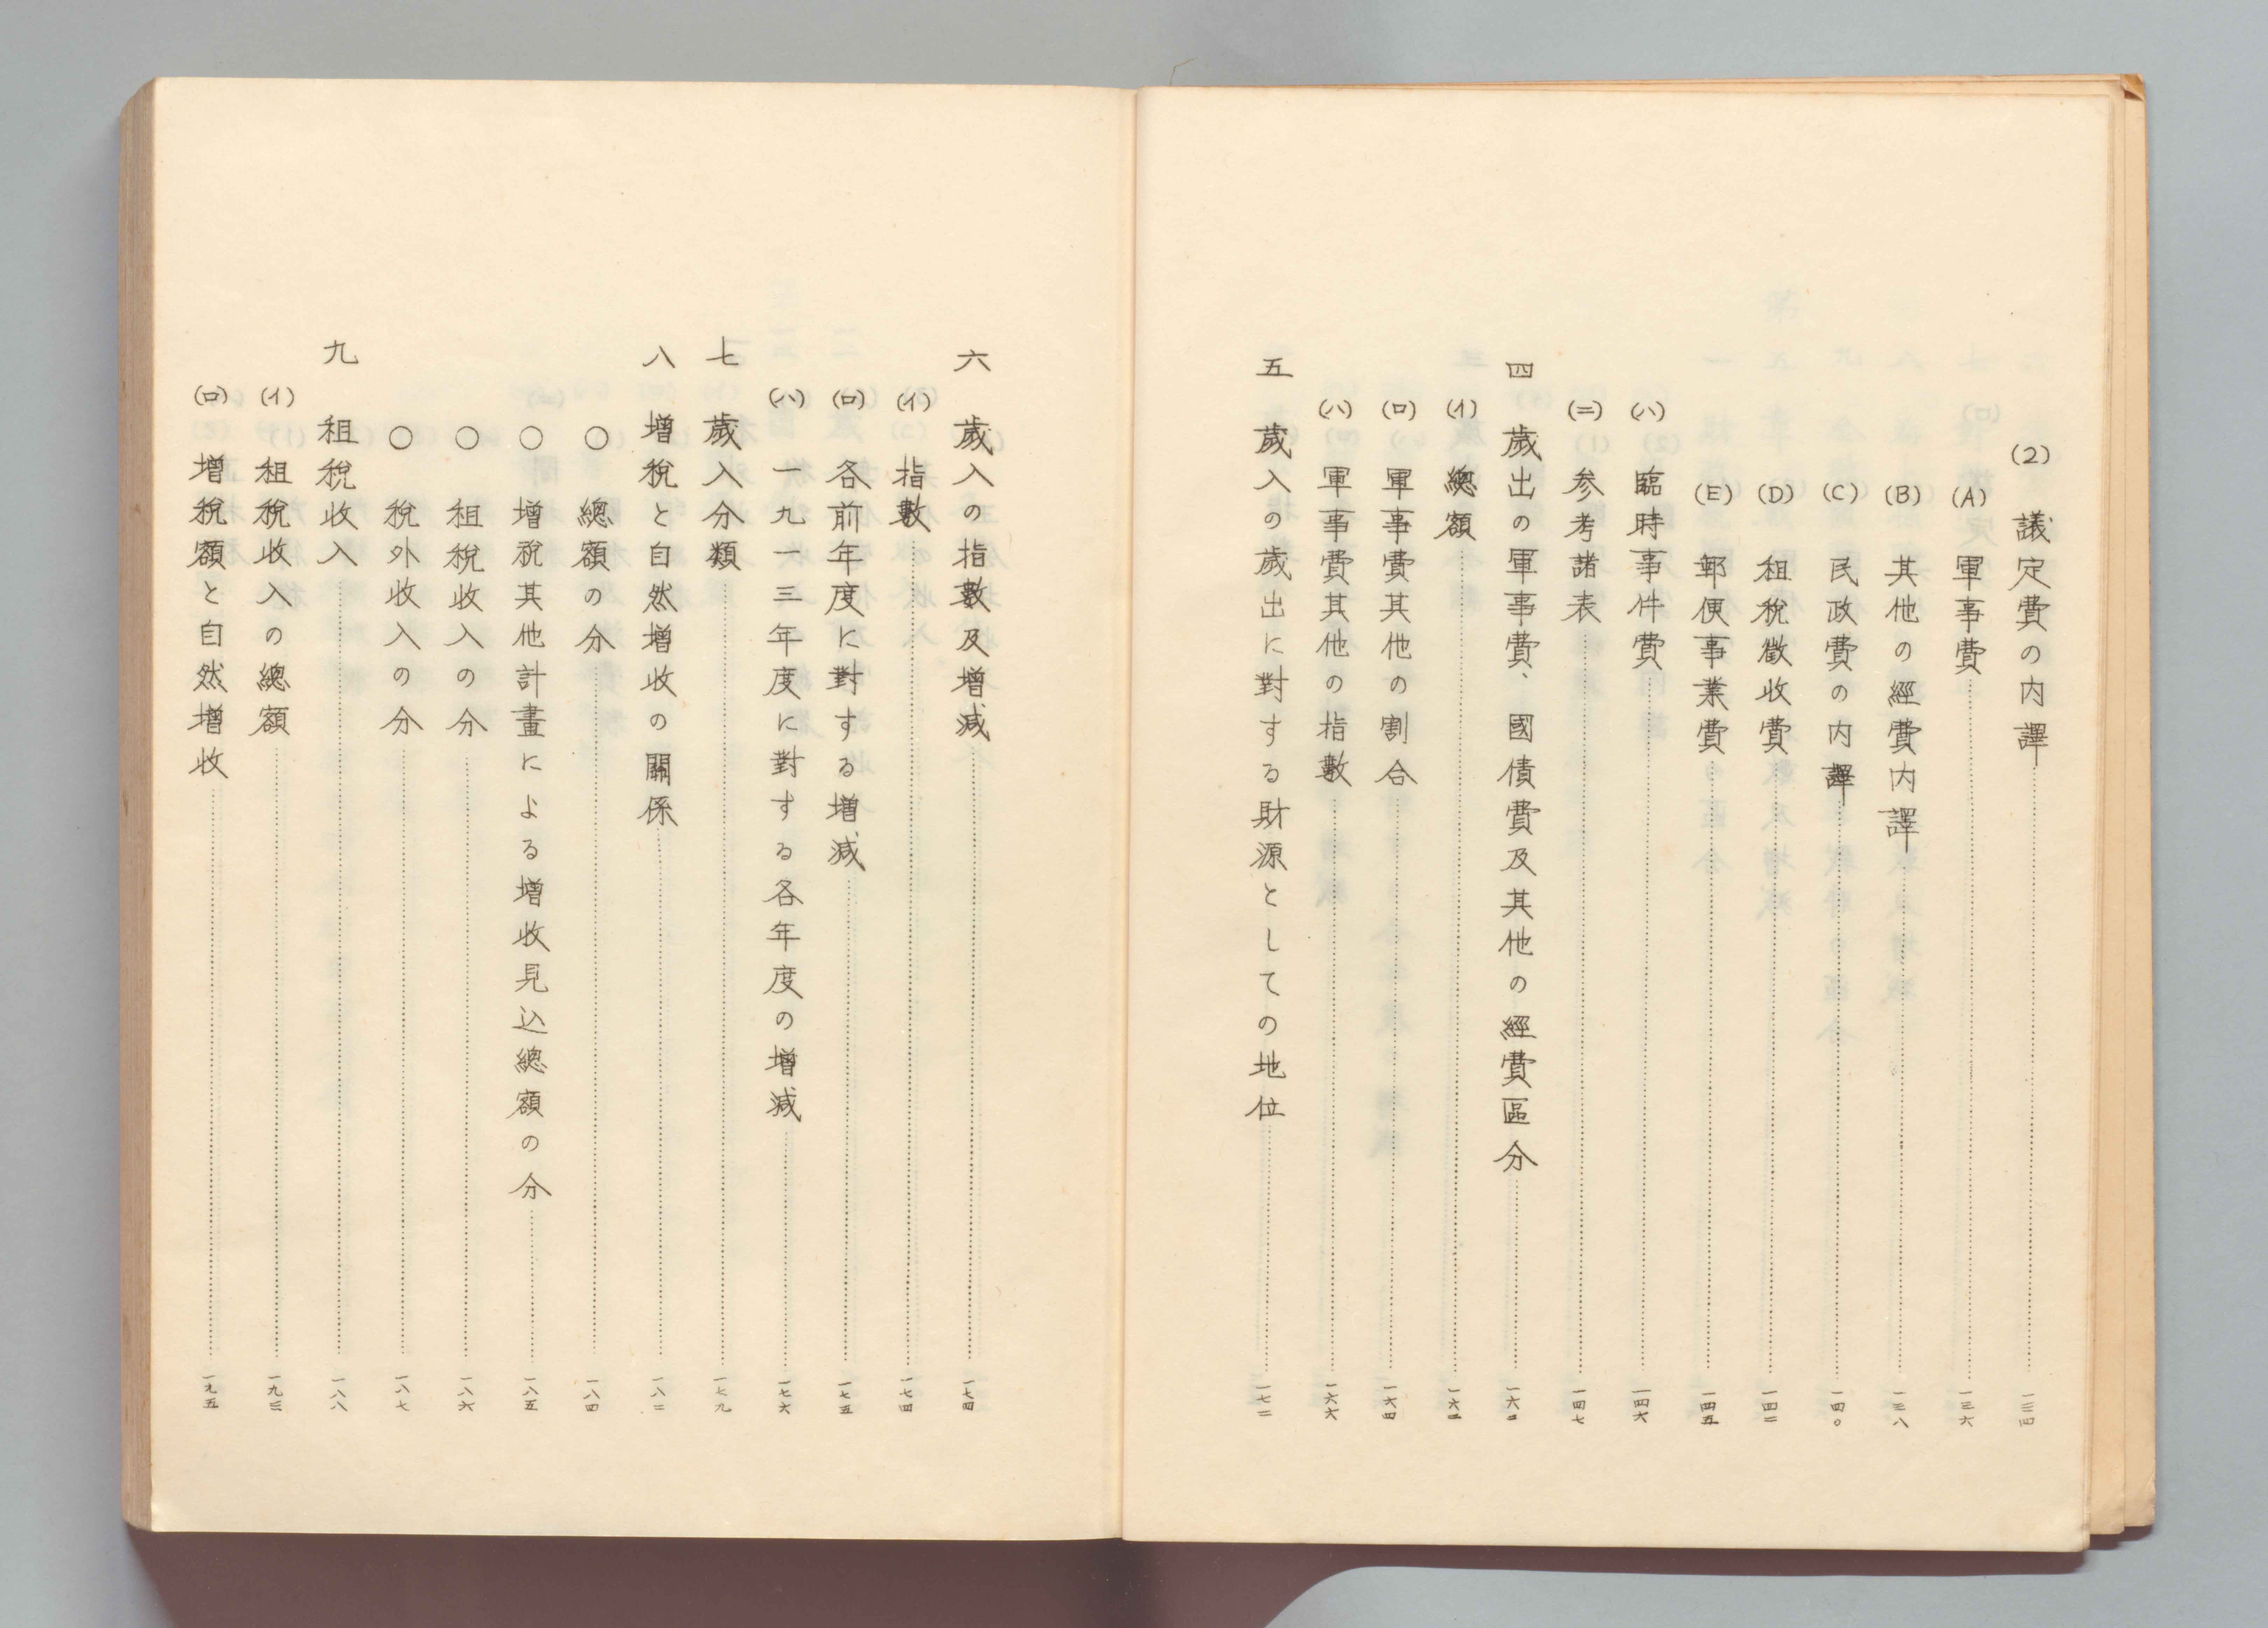 (2) 議定費の内譯 一三四
(A) 軍事費 一三六
(B) 其他の經費内譯 一三八
(C) 民政費の内譯 一四〇
(D) 租稅徵收費 一四二
(E) 郵便事業費 一四五
(ハ) 臨時事件費 一四六
(ニ) 参考諸表 一四七
四 歲出の軍事費、國債費及其他の經費區分 一六二
(イ) 總額 一六二
(ロ) 軍事費其他の割合 一六四
(ハ) 軍事費其他の指數 一六六
五 歲入の歲出に對する財源としての地位 一七二
六 歲入の指數及增減 一七四
(イ) 指數 一七四
(ロ) 各前年度に對する增減 一七五
(ハ) 一九一三年度に對する各年度の增減 一七六
七 歲入分類 一七九
八 增稅と自然增收の關係 一八二
〇 總額の分 一八四
〇 增稅其他計畫による增收見込總額の分 一八五
〇 租稅收入の分 一八六
〇 稅外收入の分 一八七
九 租稅收入 一八八
(イ) 租稅收入の總額 一九三
(ロ) 增稅額と自然增收 一九五